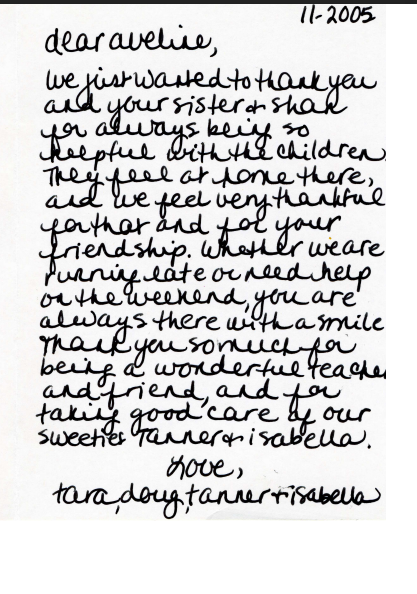 11-2005
dear aveline,
we just wanted to thank you
and your sister & shan
for always being so
helpful with the children.
They feel at home there,
and we feel very thankful
for that and for your
friendship. Whether we are
running late or need help
on the weekend, you are
always there with a smile
Thank you so much for
being a wonderful teacher
and friend, and for
taking good care of our
sweeties Tanner & isabella.
Love,
tara, doug, tanner & isabella